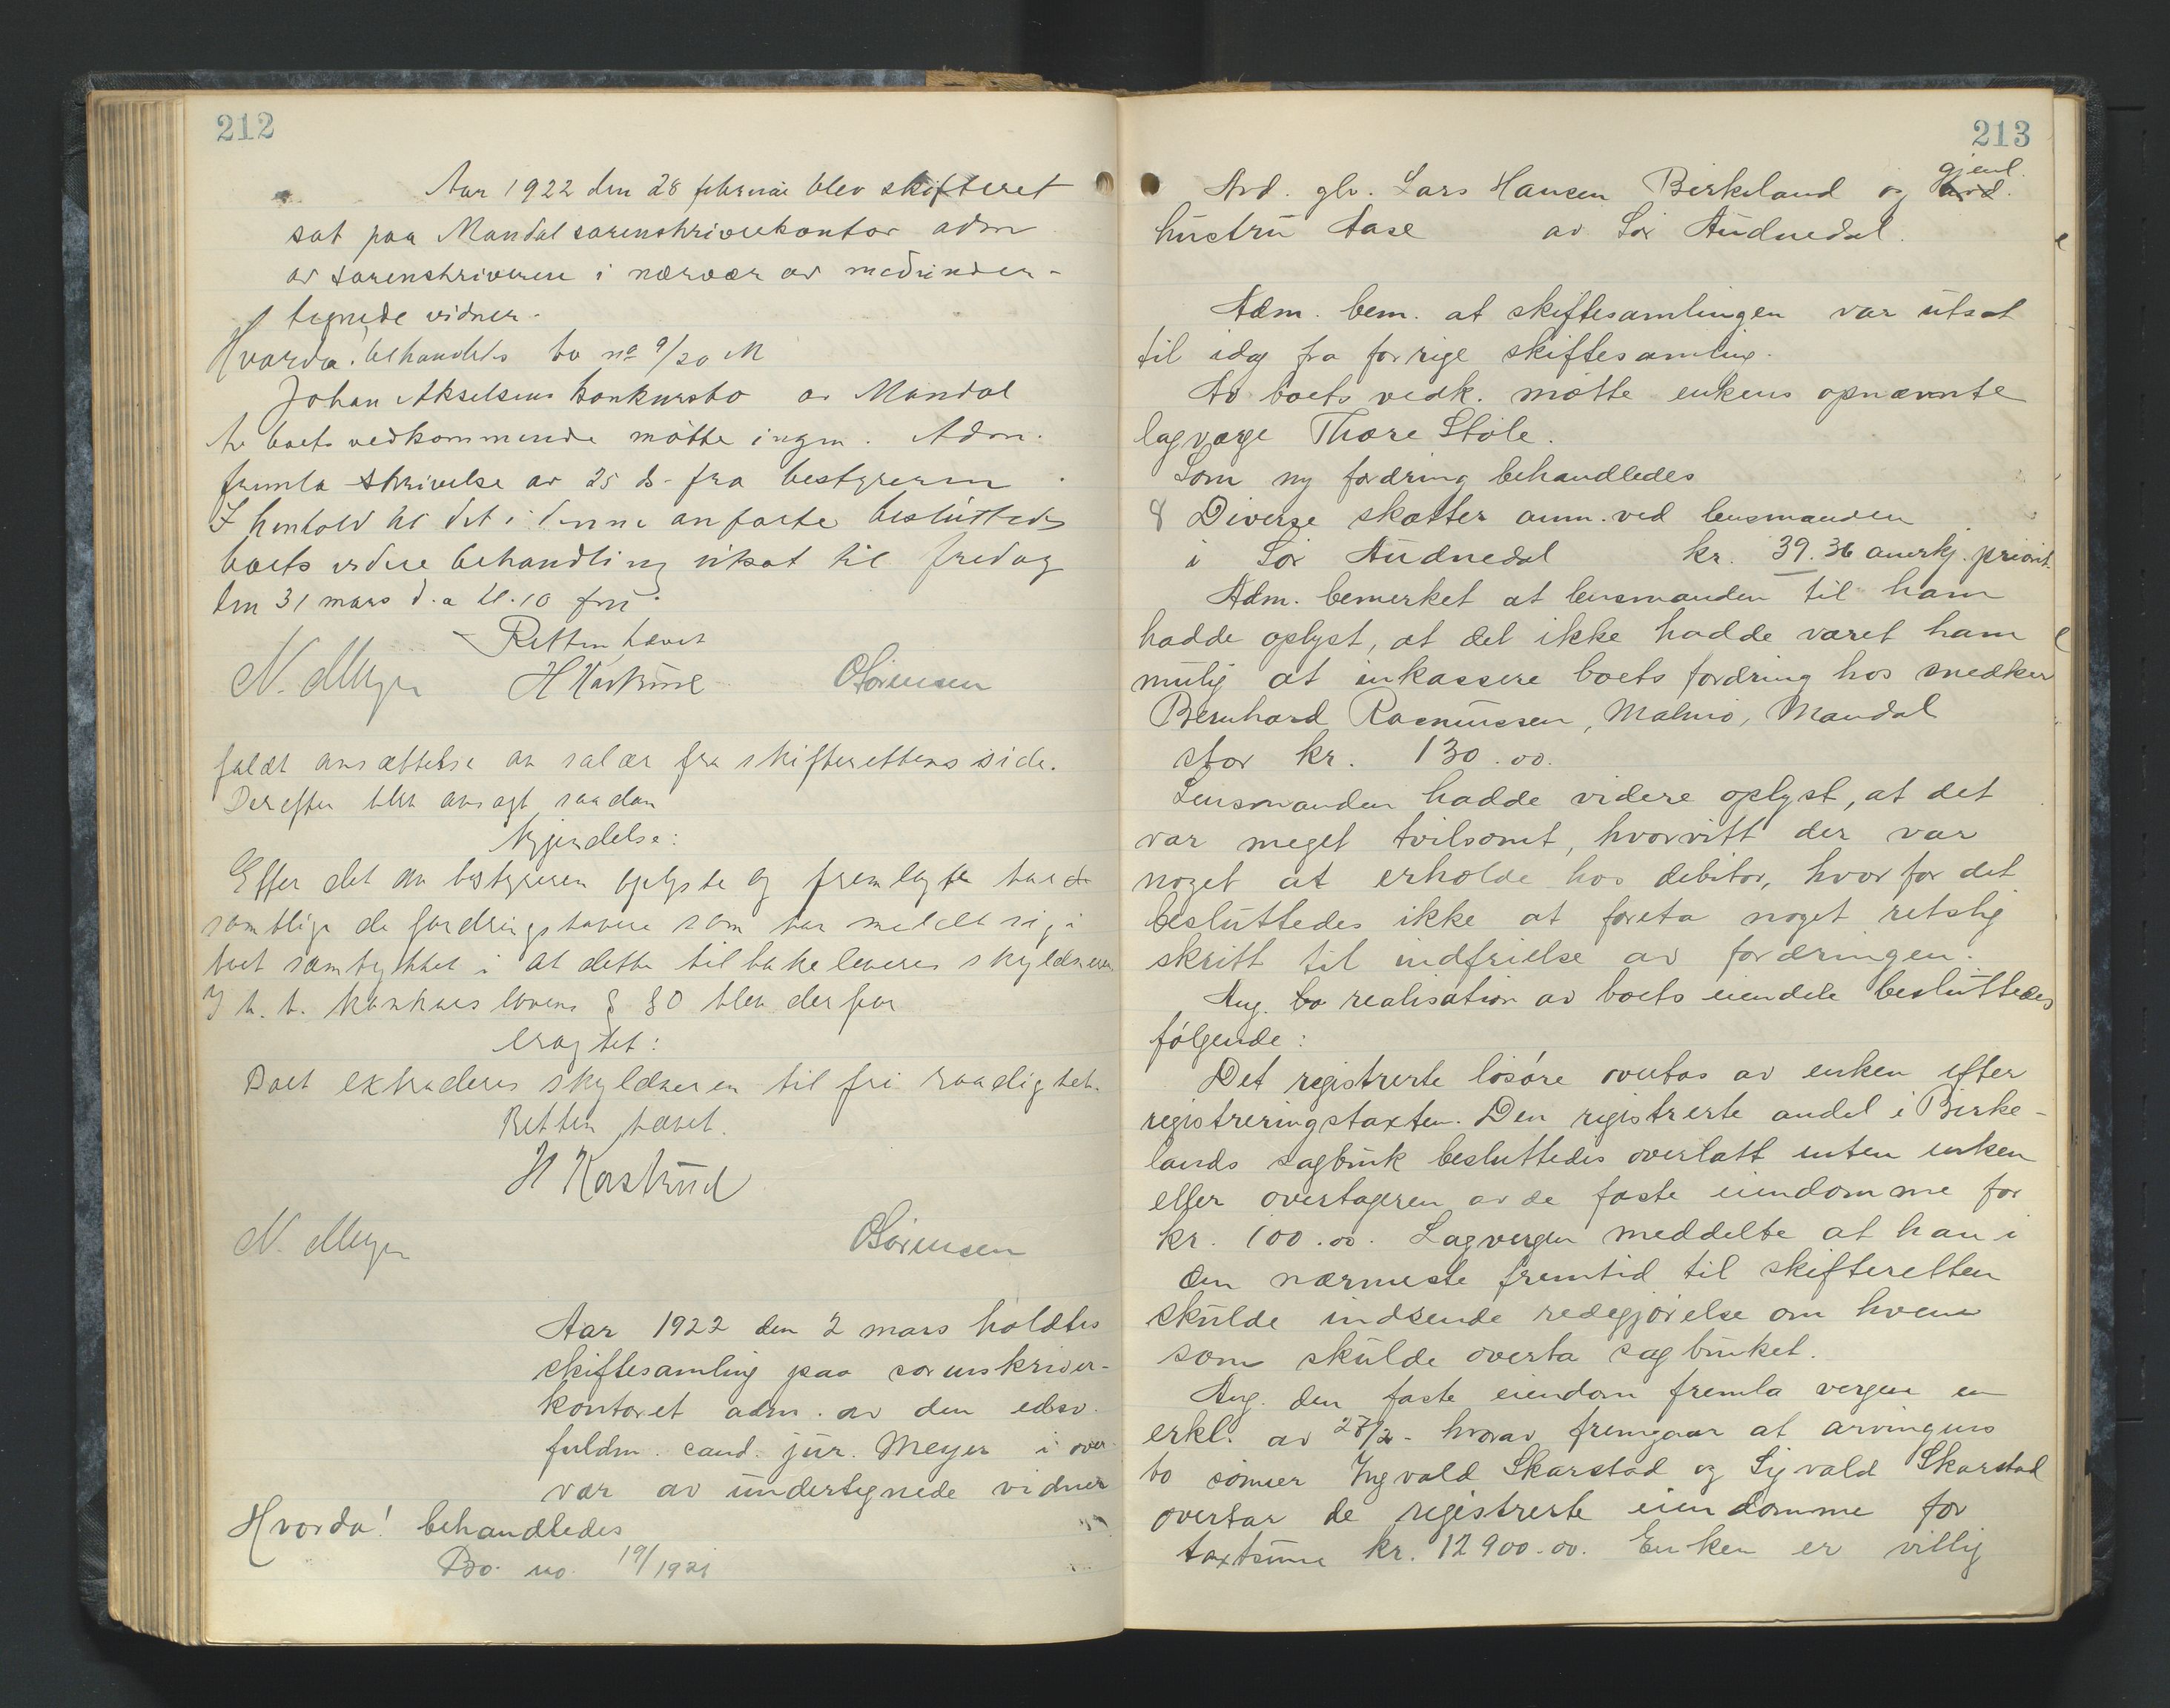 212
Aar 1922 den 28 februar blev skifteret
sat paa Mandal sorenskriverkontor adm
av sorenskriveren i nærvær av medunder-
tegnede vidner.
Hvorda! behandledes bo no 9/20 M
Johan Akselsens konkursbo av Mandal
For boets vedkommende møtte ingen. Adm.
fremla skrivelse av 25 ds. fra bestyreren
I henhold til det i denne anførte besluttedes
boets videre behandling utsat til fredag
den 31 mars d.a kl. 10 fm.
Retten hævet
N. Meyer H Kastrud OSørensen
faldt ansættelse av salær fra skifterettens side.
Derefter blev avsagt saadan
Kjendelse:
Efter det av bestyreren oplyste og fremlagte har de
samtlige de fordringshavere som har meldt sig i
boet samtykket i at dette tilbakeleveres skyldneren
I h. t. konkurslovens § 80 blev derfor
eragtet:
Boet extraderes skyldneren til fri raadighet.
Retten hævet.
H Kastrud
N. Meyer OSørensen
Aar 1922 den 2 mars holdtes
skiftesamling paa sorenskriver-
kontoret adm. av den edsv.
fuldm. cand. jur. Meyer i over-
vær av undertegnede vidner
Hvorda! behandledes
Bo. no. 19/1921
213
Avd. gbr. Lars Hansen Birkeland og avd. gjenl.
hustru Aase av Sør Audnedal.
Adm. bem. at skiftesamlingen var utsat
til idag fra forrige skiftesamling.
Av boets vedk. møtte enkens opnævnte
lagværge Thore Støle.
Som ny fordring behandledes
8 Diverse skatter anm. ved lensmanden
i Sør Audnedal kr. 39.36 anerkj. priorit.
Adm. bemerket at lensmanden til ham
hadde oplyst, at det ikke hadde været ham
mulig at inkassere boets fordring hos snedker
Bernhard Rasmussen, Malmø, Mandal
stor kr. 130.00.
Lensmanden hadde videre oplyst, at det
var meget tvilsomt, hvorvitt der var
noget at erholde hos debitor, hvorfor det
besluttedes ikke at foreta noget retslig
skritt til indfrielse av fordringen.
Ang. bo realisation av boets eiendele besluttedes
følgende:
Det registrerte løsøre overtas av enken efter
registreringstaxten. Den registrerte andel i Birke-
lands sagbruk besluttedes overlatt enten enken
eller overtageren av de faste eiendomme for
kr. 100.00. Lagvergen meddelte at han i
den nærmeste fremtid til skifteretten
skulde indsende redegjørelse om hvem
som skulde overta sagbruket.
Ang. den faste eiendom fremla vergen en
erkl. av 27/2 - hvorav fremgaar at arvingens
to sønner Ingvald Skarstad og Sigvald Skarstad
overtar de registrerte eiendomme for
taxtsum kr. 12900.00. Enken er villig